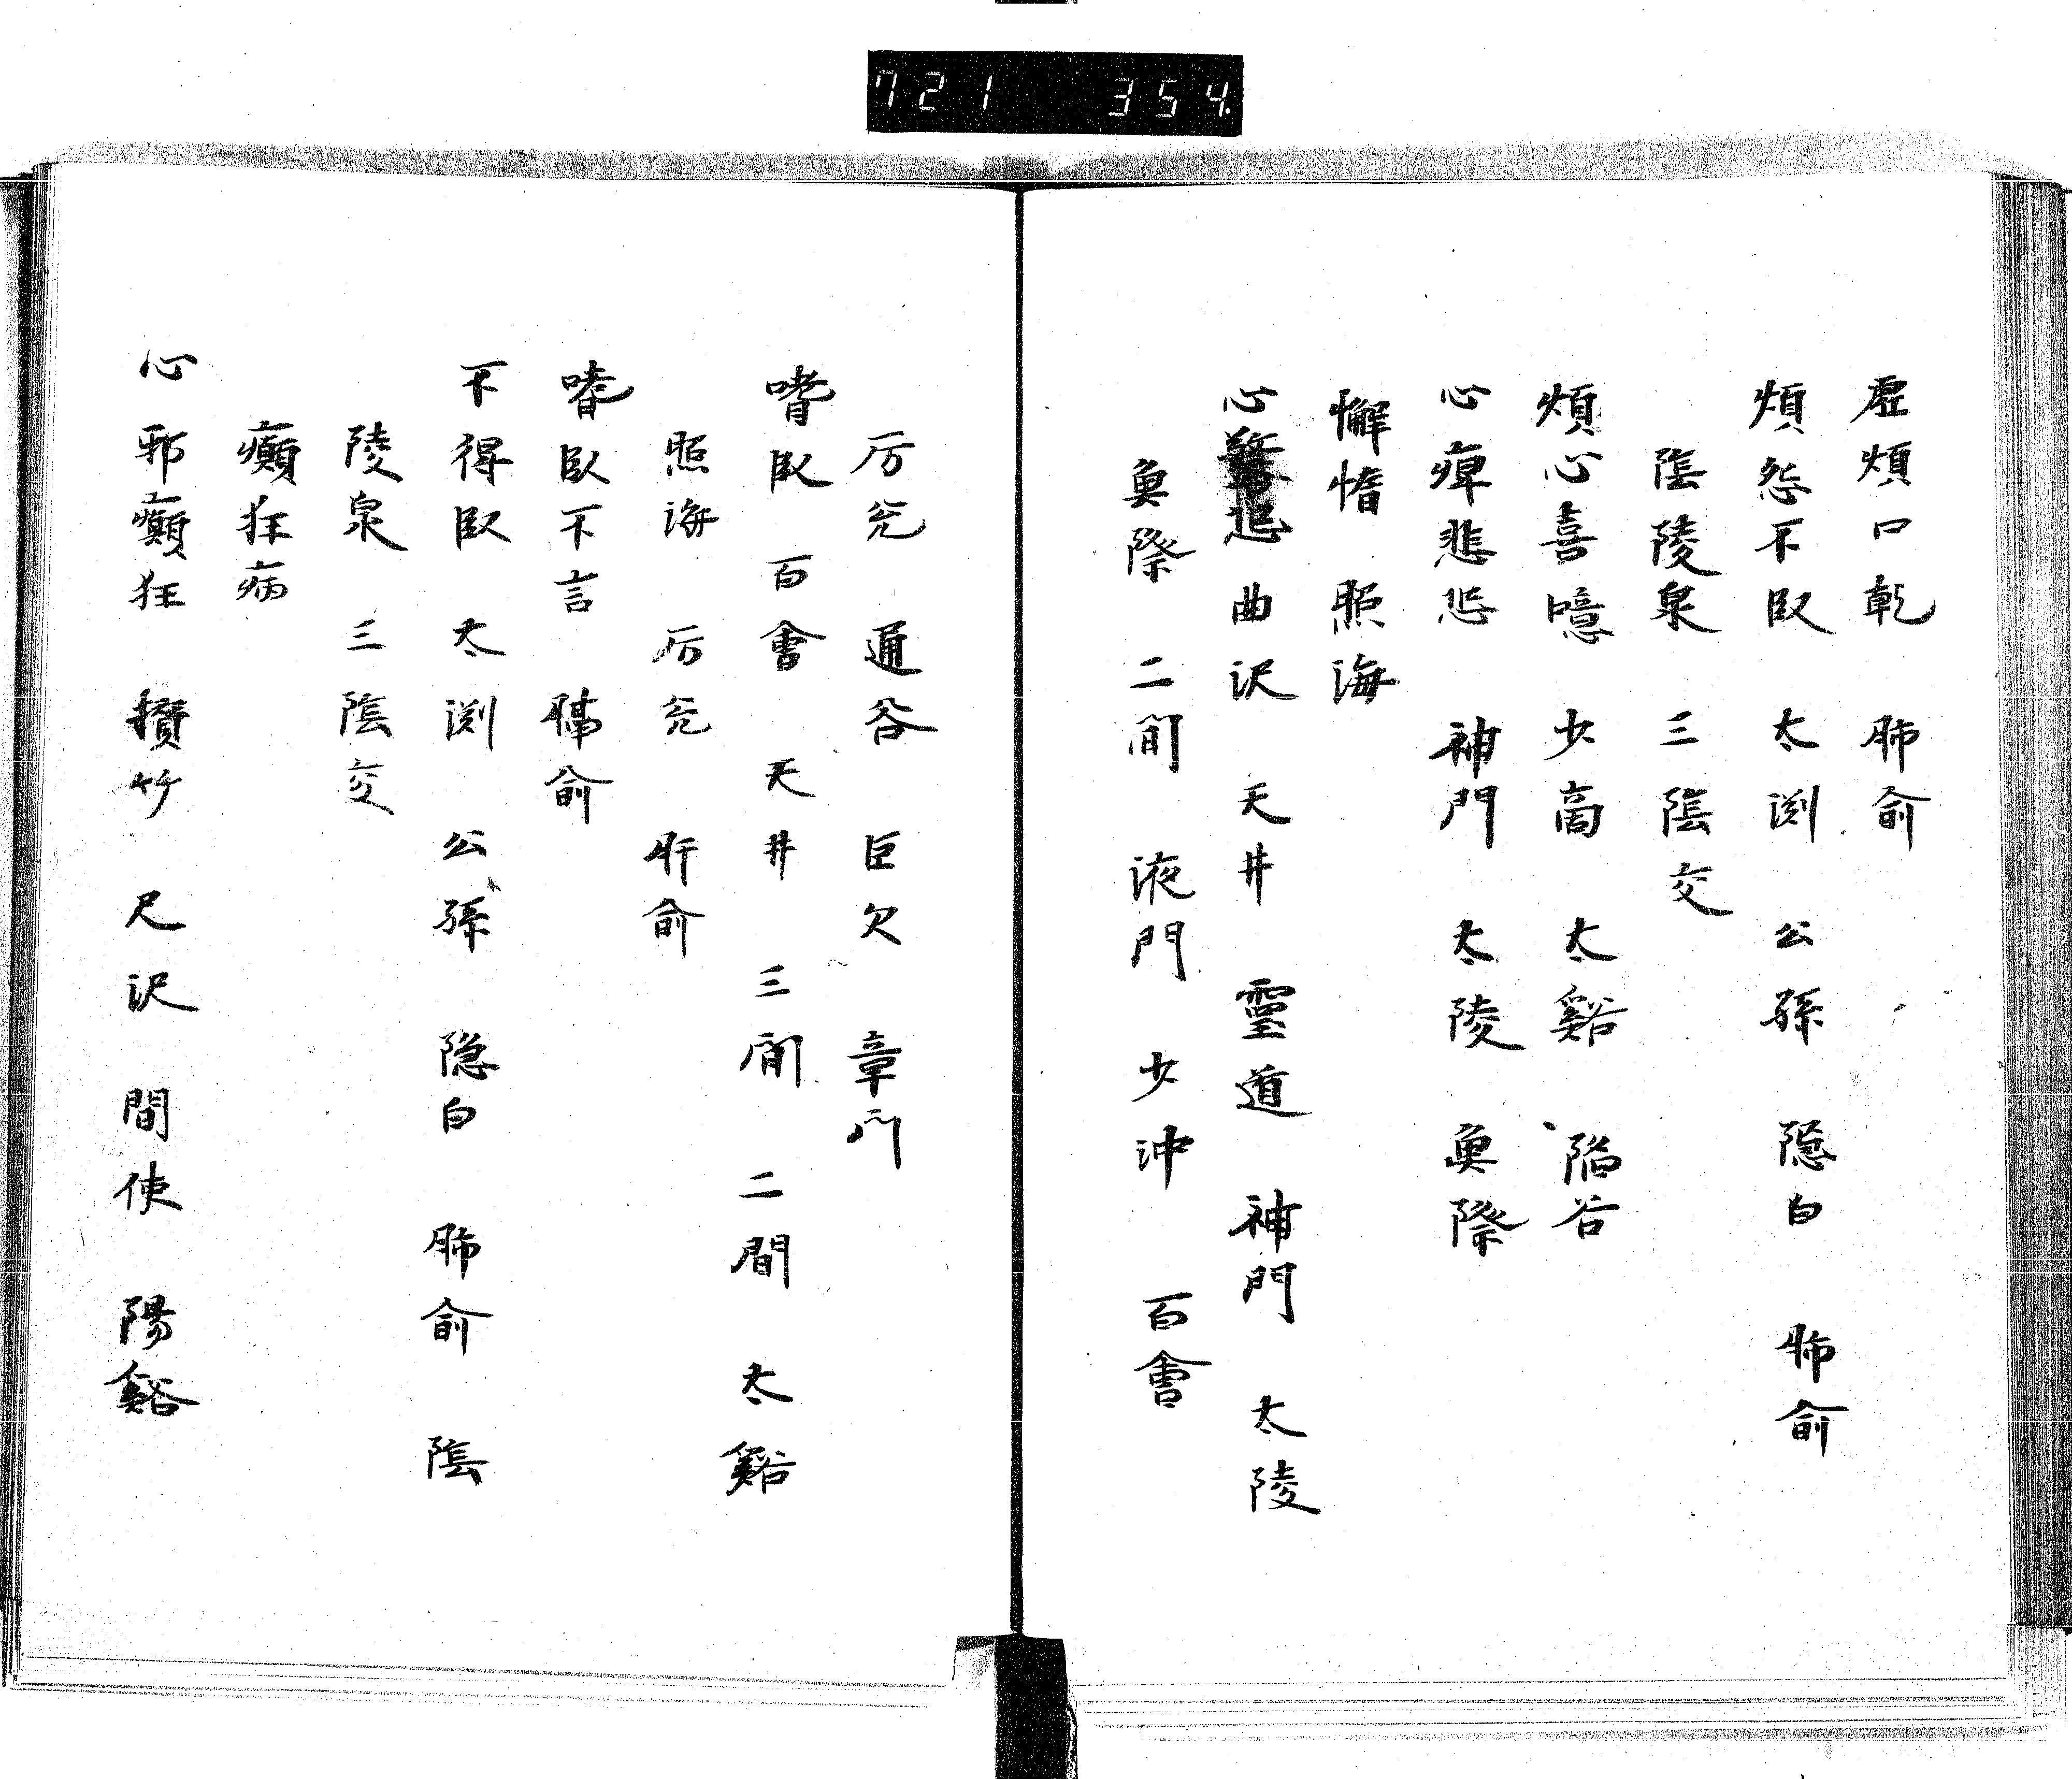 721 354
虚煩口乾 肺俞
煩怨不臥 太渕 公孫 隠白 肺俞
陰陵泉 三陰交
煩心喜噫 少商 太谿 陥谷
心痺悲恐 神門 太陵 魚際
懈惰 照海
心驚恐 曲沢 天井 霊道 神門 太陵
魚際 二間 液門 少沖 百會
厉兊 通谷 巨欠 章門
嗜臥 百會 天井 三間 二間 太谿
照海 厉兊 肝俞
嗜臥不言 膈俞
不得臥 太渕 公孫 隠白 肺俞 陰
陵泉 三陰交
癲狂病
心邪癲狂 攅竹 尺沢 間使 陽谿